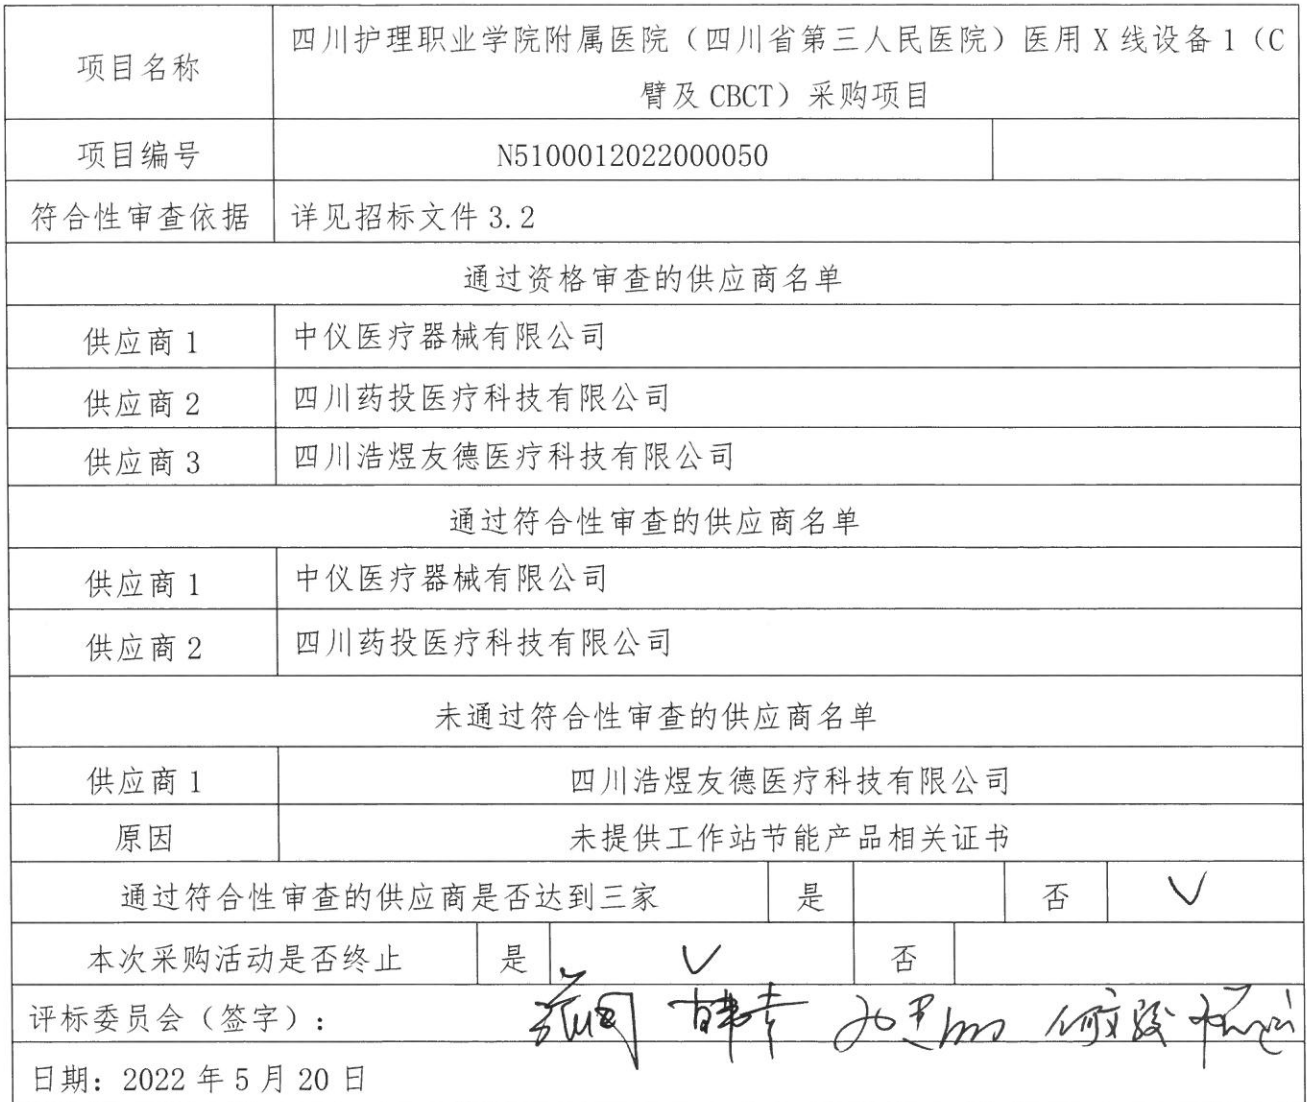 项目名称
四川护理职业学院附属医院（四川省第三人民医院）医用 X 线设备 1（C
臂及 CBCT）采购项目
项目编号
N5100012022000050
符合性审查依据
详见招标文件 3.2
通过资格审查的供应商名单
供应商 1
中仪医疗器械有限公司
供应商 2
四川药投医疗科技有限公司
供应商 3
四川浩煜友德医疗科技有限公司
通过符合性审查的供应商名单
供应商 1
中仪医疗器械有限公司
供应商 2
四川药投医疗科技有限公司
未通过符合性审查的供应商名单
供应商 1
四川浩煜友德医疗科技有限公司
原因
未提供工作站节能产品相关证书
通过符合性审查的供应商是否达到三家 是 否 √
本次采购活动是否终止 是 √ 否
评标委员会（签字）：
日期：2022 年 5 月 20 日